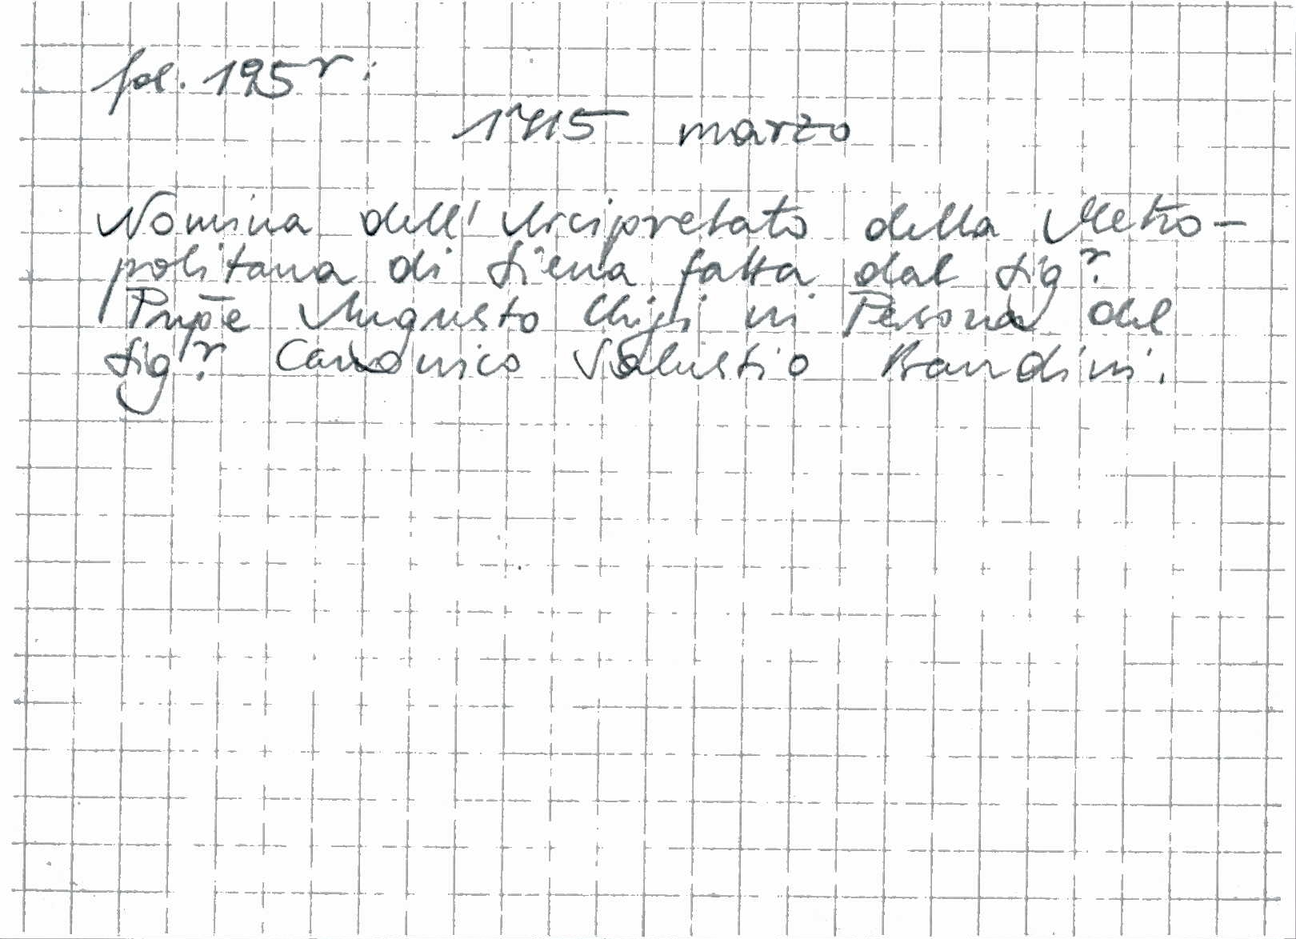 fol. 195r:
1715 marzo
Nomina dell'Arcipretato della Metro-
politana di Siena fatta dal Sigr.
Prnpē Augusto Chigi in Persona del
Sigr. Canonico Salustio Bandini.